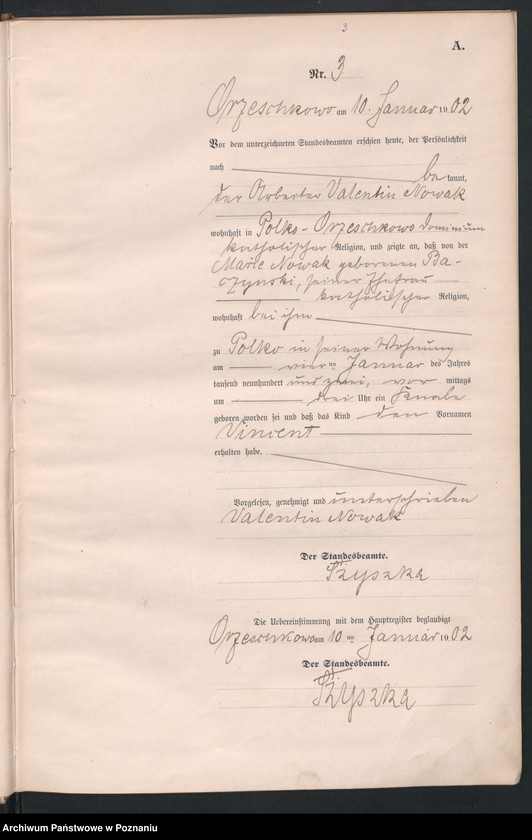 3
A.
Nr. 3
Orzeschkowo am 10. Januar 1902
Vor dem unterzeichneten Standesbeamten erschien heute, der Persönlichkeit
nach be kannt,
der Arbeiter Valentin Nowak
wohnhaft in Polko-Orzeschkowo dominium
katholischer Religion, und zeigte an, daß von der
Marie Nowak geborenen Ba-
czynski, seiner Ehefrau
katholischer Religion,
wohnhaft bei ihm
zu Polko in seiner Wohnung
am vier ten Januar des Jahres
tausend neunhundert und zwei, vor mittags
um drei Uhr ein Knabe
geboren worden sei und daß das Kind den Vornamen
Vincent
erhalten habe.
Vorgelesen, genehmigt und unterschrieben
Valentin Nowak
Der Standesbeamte.
Die Uebereinstimmung mit dem Hauptregister beglaubigt
Orzeschkowo am 10 ten Januar 1902
Der Standesbeamte.
Archiwum Państwowe w Poznaniu